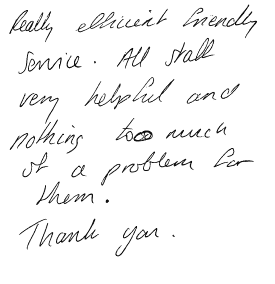 Really efficient friendly
service. All staff
very helpful and
nothing too much
of a problem for
them.
Thank you.